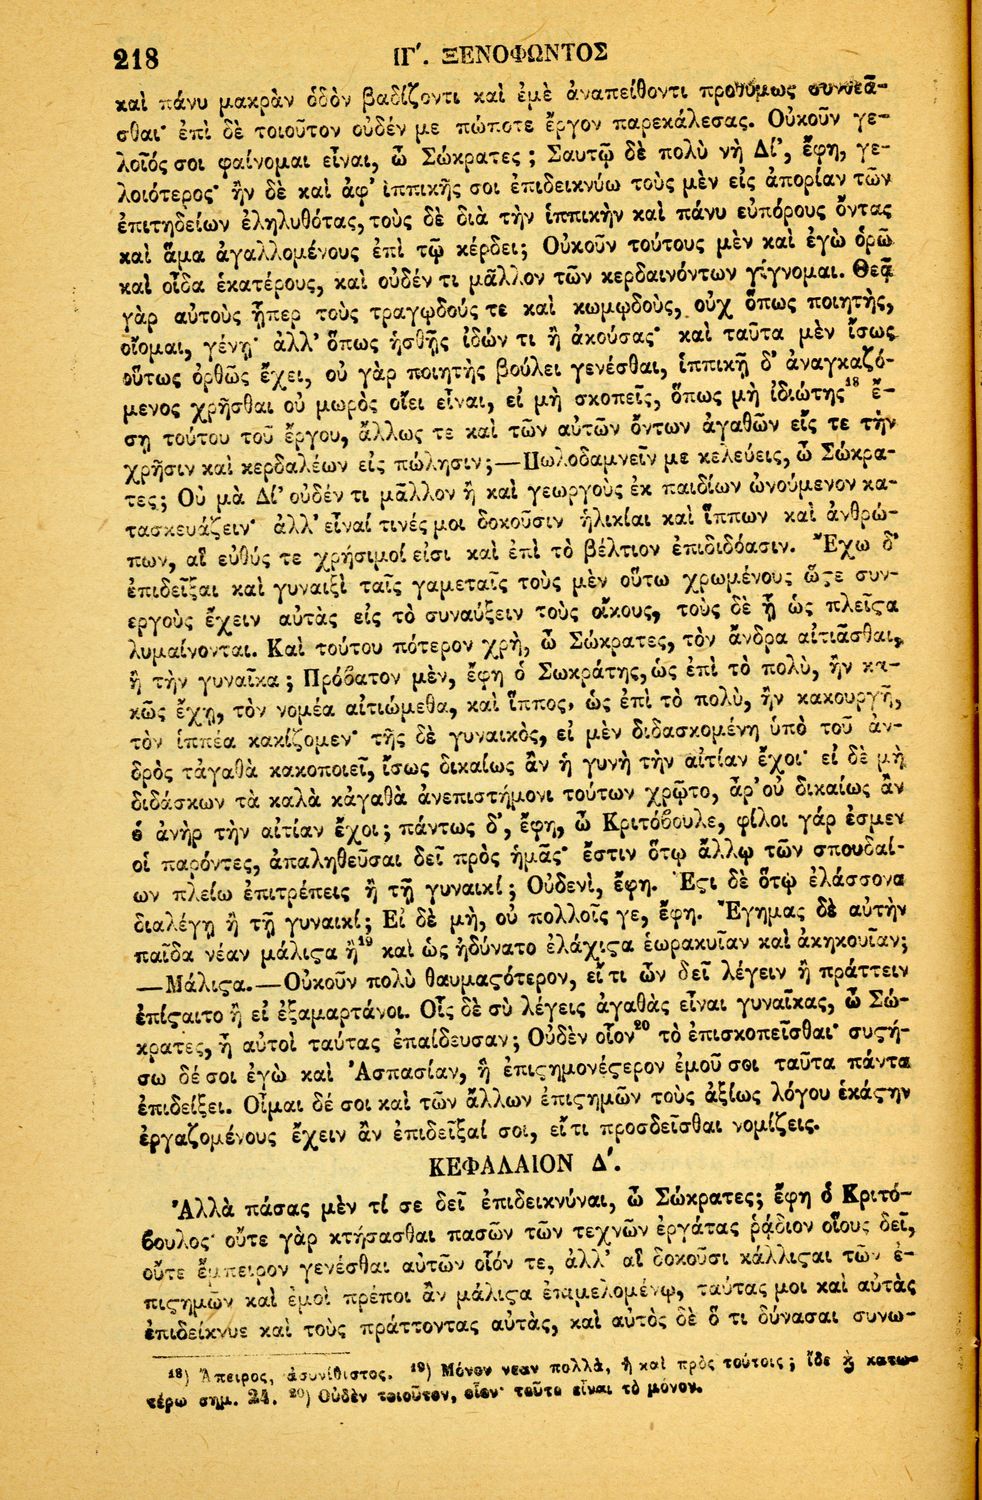 218
ΙΓ΄. ΞΕΝΟΦΩΝΤΟΣ
καὶ πάνυ μακρὰν ὁδὸν βαδίζοντι καὶ ἐμὲ ἀναπείθοντι προθύμως συνθεᾶ-
σθαι· ἐπὶ δὲ τοιοῦτον οὐδέν με πώποτε ἔργον παρεκάλεσας. Οὐκοῦν γε-
λοῖός σοι φαίνομαι εἶναι, ὦ Σώκρατες; Σαυτῷ δὲ πολὺ νὴ Δί', ἔφη, γε-
λοιότερος· ἢν δὲ καὶ ἀφ' ἱππικῆς σοι ἐπιδεικνύω τοὺς μὲν εἰς ἀπορίαν τῶν
ἐπιτηδείων ἐληλυθότας, τοὺς δὲ διὰ τὴν ἱππικὴν καὶ πάνυ εὐπόρους ὄντας
καὶ ἅμα ἀγαλλομένους ἐπὶ τῷ κέρδει; Οὐκοῦν τούτους μὲν καὶ ἐγὼ ὁρῶ
καὶ οἶδα ἑκατέρους, καὶ οὐδέν τι μᾶλλον τῶν κερδαινόντων γίγνομαι. Θεᾷ
γὰρ αὐτοὺς ᾗπερ τοὺς τραγῳδούς τε καὶ κωμῳδοὺς, οὐχ ὅπως ποιητὴς,
οἴομαι, γένῃ· ἀλλ' ὅπως ἡσθῇς ἰδών τι ἢ ἀκούσας· καὶ ταῦτα μὲν ἴσως
οὕτως ὀρθῶς ἔχει, οὐ γὰρ ποιητὴς βούλει γενέσθαι, ἱππικῇ δ' ἀναγκαζό-
μενος χρῆσθαι οὐ μωρὸς οἴει εἶναι, εἰ μὴ σκοπεῖς, ὅπως μὴ ἰδιώτης¹⁸ ἔ-
σῃ τούτου τοῦ ἔργου, ἄλλως τε καὶ τῶν αὐτῶν ὄντων ἀγαθῶν εἴς τε τὴν
χρῆσιν καὶ κερδαλέων εἰς πώλησιν;—Πωλοδαμνεῖν με κελεύεις, ὦ Σώκρα-
τες; Οὐ μὰ Δί' οὐδέν τι μᾶλλον ἢ καὶ γεωργοὺς ἐκ παιδίων ὠνούμενον κα-
τασκευάζειν· ἀλλ' εἶναί τινές μοι δοκοῦσιν ἡλικίαι καὶ ἵππων καὶ ἀνθρώ-
πων, αἳ εὐθύς τε χρήσιμοί εἰσι καὶ ἐπὶ τὸ βέλτιον ἐπιδιδόασιν. Ἔχω δ'
ἐπιδεῖξαι καὶ γυναιξὶ ταῖς γαμεταῖς τοὺς μὲν οὕτω χρωμένους ὥςε συν-
εργοὺς ἔχειν αὐτὰς εἰς τὸ συναύξειν τοὺς οἴκους, τοὺς δὲ ᾗ ὡς πλεῖςα
λυμαίνονται. Καὶ τούτου πότερον χρὴ, ὦ Σώκρατες, τὸν ἄνδρα αἰτιᾶσθαι,
ἢ τὴν γυναῖκα; Πρόβατον μὲν, ἔφη ὁ Σωκράτης, ὡς ἐπὶ τὸ πολὺ, ἢν κα-
κῶς ἔχῃ, τὸν νομέα αἰτιώμεθα, καὶ ἵππος, ὡς ἐπὶ τὸ πολὺ, ἢν κακουργῇ,
τὸν ἱππέα κακίζομεν· τῆς δὲ γυναικὸς, εἰ μὲν διδασκομένη ὑπὸ τοῦ ἀν-
δρὸς τἀγαθὰ κακοποιεῖ, ἴσως δικαίως ἂν ἡ γυνὴ τὴν αἰτίαν ἔχοι· εἰ δὲ μὴ
διδάσκων τὰ καλὰ κἀγαθὰ ἀνεπιστήμονι τούτων χρῷτο, ἆρ' οὐ δικαίως ἂν
ὁ ἀνὴρ τὴν αἰτίαν ἔχοι; πάντως δ', ἔφη, ὦ Κριτόβουλε, φίλοι γάρ ἐσμεν
οἱ παρόντες, ἀπαληθεῦσαι δεῖ πρὸς ἡμᾶς· ἔστιν ὅτῳ ἄλλῳ τῶν σπουδαί-
ων πλείω ἐπιτρέπεις ἢ τῇ γυναικί; Οὐδενὶ, ἔφη. Ἔςι δὲ ὅτῳ ἐλάσσονα
διαλέγῃ ἢ τῇ γυναικί; Εἰ δὲ μὴ, οὐ πολλοῖς γε, ἔφη. Ἔγημας δὲ αὐτὴν
παῖδα νέαν μάλιςα ἢ¹⁹ καὶ ὡς ἠδύνατο ἐλάχιςα ἑωρακυῖαν καὶ ἀκηκουῖαν;
—Μάλιςα.—Οὐκοῦν πολὺ θαυμαςότερον, εἴ τι ὧν δεῖ λέγειν ἢ πράττειν
ἐπίςαιτο ἢ εἰ ἐξαμαρτάνοι. Οἷς δὲ σὺ λέγεις ἀγαθὰς εἶναι γυναῖκας, ὦ Σώ-
κρατες, ἦ αὐτοὶ ταύτας ἐπαίδευσαν; Οὐδὲν οἷον²⁰ τὸ ἐπισκοπεῖσθαι· συςή-
σω δέ σοι ἐγὼ καὶ Ἀσπασίαν, ἣ ἐπιςημονέςερον ἐμοῦ σοι ταῦτα πάντα
ἐπιδείξει. Οἶμαι δέ σοι καὶ τῶν ἄλλων ἐπιςημῶν τοὺς ἀξίως λόγου ἑκάςην
ἐργαζομένους ἔχειν ἂν ἐπιδεῖξαί σοι, εἴ τι προσδεῖσθαι νομίζεις.
ΚΕΦΑΛΑΙΟΝ Δ΄.
Ἀλλὰ πάσας μὲν τί σε δεῖ ἐπιδεικνύναι, ὦ Σώκρατες; ἔφη ὁ Κριτό-
βουλος· οὔτε γὰρ κτήσασθαι πασῶν τῶν τεχνῶν ἐργάτας ῥᾴδιον οἵους δεῖ,
οὔτε ἔμπειρον γενέσθαι αὐτῶν οἷόν τε, ἀλλ' αἳ δοκοῦσι κάλλιςαι τῶν ἐ-
πιςημῶν καὶ ἐμοὶ πρέποι ἂν μάλιςα ἐπιμελομένῳ, ταύτας μοι καὶ αὐτὰς
ἐπιδείκνυε καὶ τοὺς πράττοντας αὐτὰς, καὶ αὐτὸς δὲ ὅ τι δύνασαι συνω-
¹⁸) Ἄπειρος, ἀσυνίθιστος. ¹⁹) Μόνον νεαν πολλὰ, ἢ καὶ πρὸς τούτοις; ἴδε ϗ κατω-
τέρω σημ. 24. ²⁰) Οὐδὲν τοιοῦτον, οἷον· τοῦτο εἶναι τὸ μόνον.